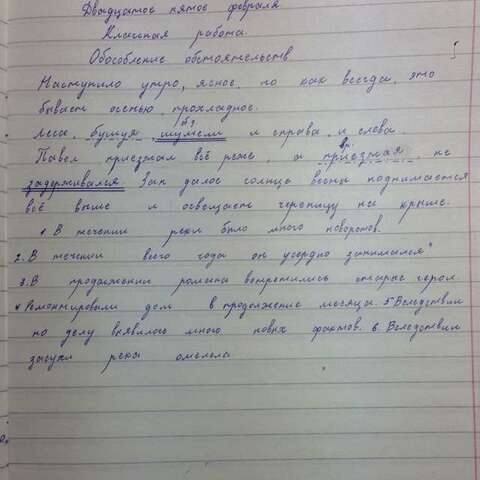 Двадцатое пятое февраля
Классная работа
Обособление обстоятельств
Наступило утро, ясное, но как всегда это
бывает осенью, прохладное.
Леса, бушуя, шумели и справа, и слева.
Павел приезжал всё реже, а приезжая, не
задерживался. Зак далое солнце весны поднимается
всё выше и освещает черепицу на крыше.
1. В течении реки было много поворотов.
2. В течении всего года он усердно занимался
3. В продолжении романа встретились старые герои.
4 Ремонтировали дом в продолжение месяца. 5 Вследствии
по делу выявилось много новых фактов. 6. Вследствии
засухи река омелела